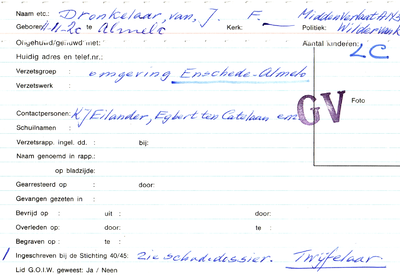 Naam etc.: Dronkelaar, van, J. F.
Geboren: 11-11-20 te: Almelo Kerk: Politiek:
Ongehuwd/gehuwd met: Aantal kinderen:
Huidig adres en telef.nr.: LC
Verzetsgroep : omgeving Enschede-Almelo
Verzetswerk :
GV Foto
Contactpersonen: KJ Eilander, Egbert ten Catelaan enz
Schuilnaam :
Verzetsrapp. ingel. dd. : bij:
Naam genoemd in rapp.:
op bladzijde:
Gearresteerd op : door:
Gevangen gezeten in :
Bevrijd op : uit : door:
Overleden op: door: te :
Begraven op : te :
Ingeschreven bij de Stichting 40/45: Zie schadedossier. Twijfelaar.
Lid G.O.I.W. geweest: Ja / Neen